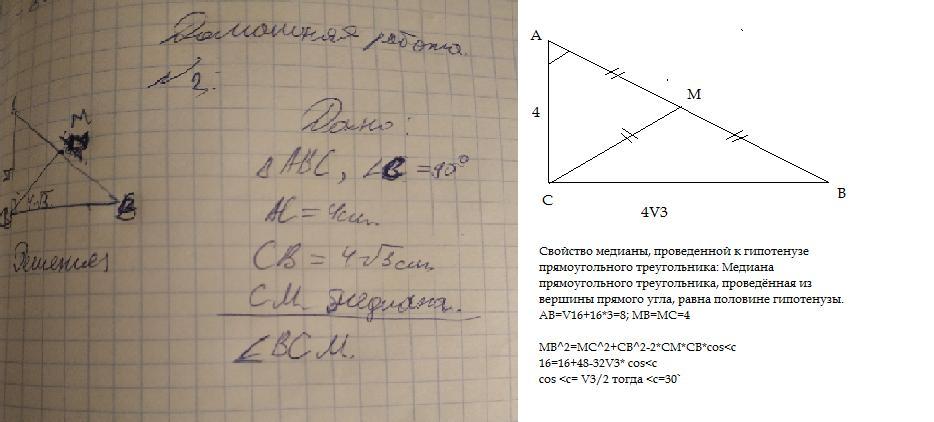 Домашняя работа.
№2.
Дано:
△ABC, ∠C = 90°
AC = 4см.
CB = 4√3 см.
CM медиана.
∠BCM.
4√3
Решение
A
M
4
C
B
4V3
Свойство медианы, проведенной к гипотенузе
прямоугольного треугольника: Медиана
прямоугольного треугольника, проведённая из
вершины прямого угла, равна половине гипотенузы.
AB=V16+16*3=8; MB=MC=4
MB^2=MC^2+CB^2-2*CM*CB*cos<c
16=16+48-32V3* cos<c
cos <c= V3/2 тогда <c=30`